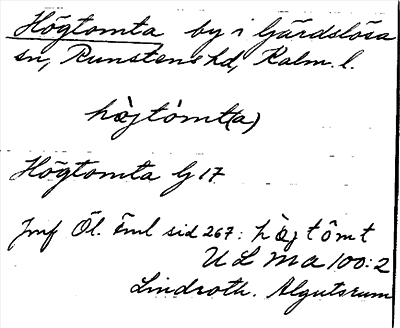 Högtomta by i Gärdslösa
sn, Runstens hd, Kalm. l.
hòjtómt(a)
Högtomta G 17
Jmf Öl. Eml sid 267: hòjtômt
ULMA 100:2
Lindroth. Algutsrum